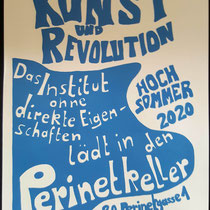 KUNST
UND
REVOLUTION
Das Institut
ohne
direkte Eigen-
schaften
HOCH
SOMMER
2020
lädt in den
Perinetkeller
20. Perinetgasse 1